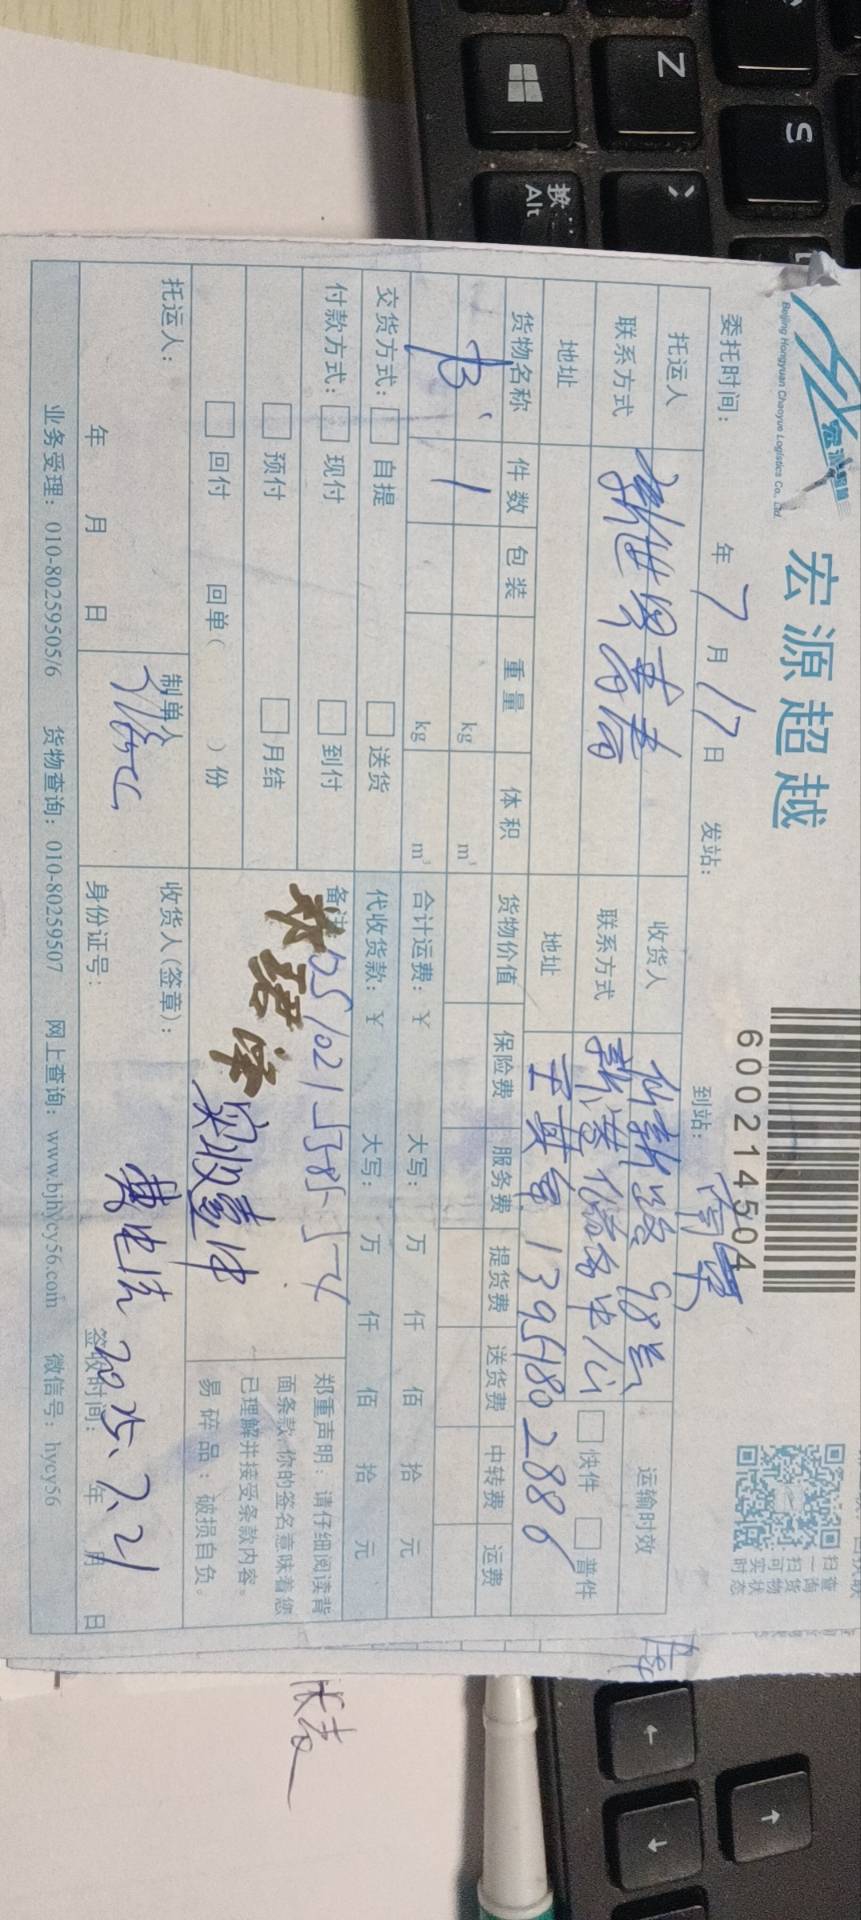 宏源超越
Beijing Hongyuan Chaoyue Logistics Co., Ltd.
600214504
扫一扫可实时
查询货物状态
委托时间: 年 7 月 17 日 发站: 到站: 南京
托运人
联系方式
地址
新世界青春
收货人
联系方式
地址
仙新路98号
新港储备中心
王英军 13951802886
运输时效
快件 普件
货物名称 件数 包装 重量 体积 货物价值 保险费 服务费 提货费 送货费 中转费 运费
1 kg m³
kg m³
交货方式: 自提 送货
付款方式: 现付 到付
预付 月结
回付 回单( )份
合计运费: ¥ 大写: 万 仟 佰 拾 元
代收货款: ¥ 大写: 万 仟 佰 拾 元
备注:
实收壹件
郑重声明:请仔细阅读背
面条款,你的签名意味着您
已理解并接受条款内容。
易碎品:破损自负。
托运人: 年 月 日
制单人
收货人(签章):
身份证号:
签收时间: 年 月 日
2025.7.21
业务受理: 010-80259505/6 货物查询: 010-80259507 网上查询: www.bjhycy56.com 微信号: hycy56
Z
S
换
Alt